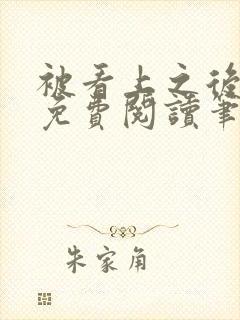 被看上之後
免費閱讀筆
朱家角